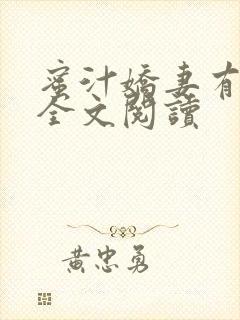 蜜汁嬌妻有
全文閱讀
黃忠勇